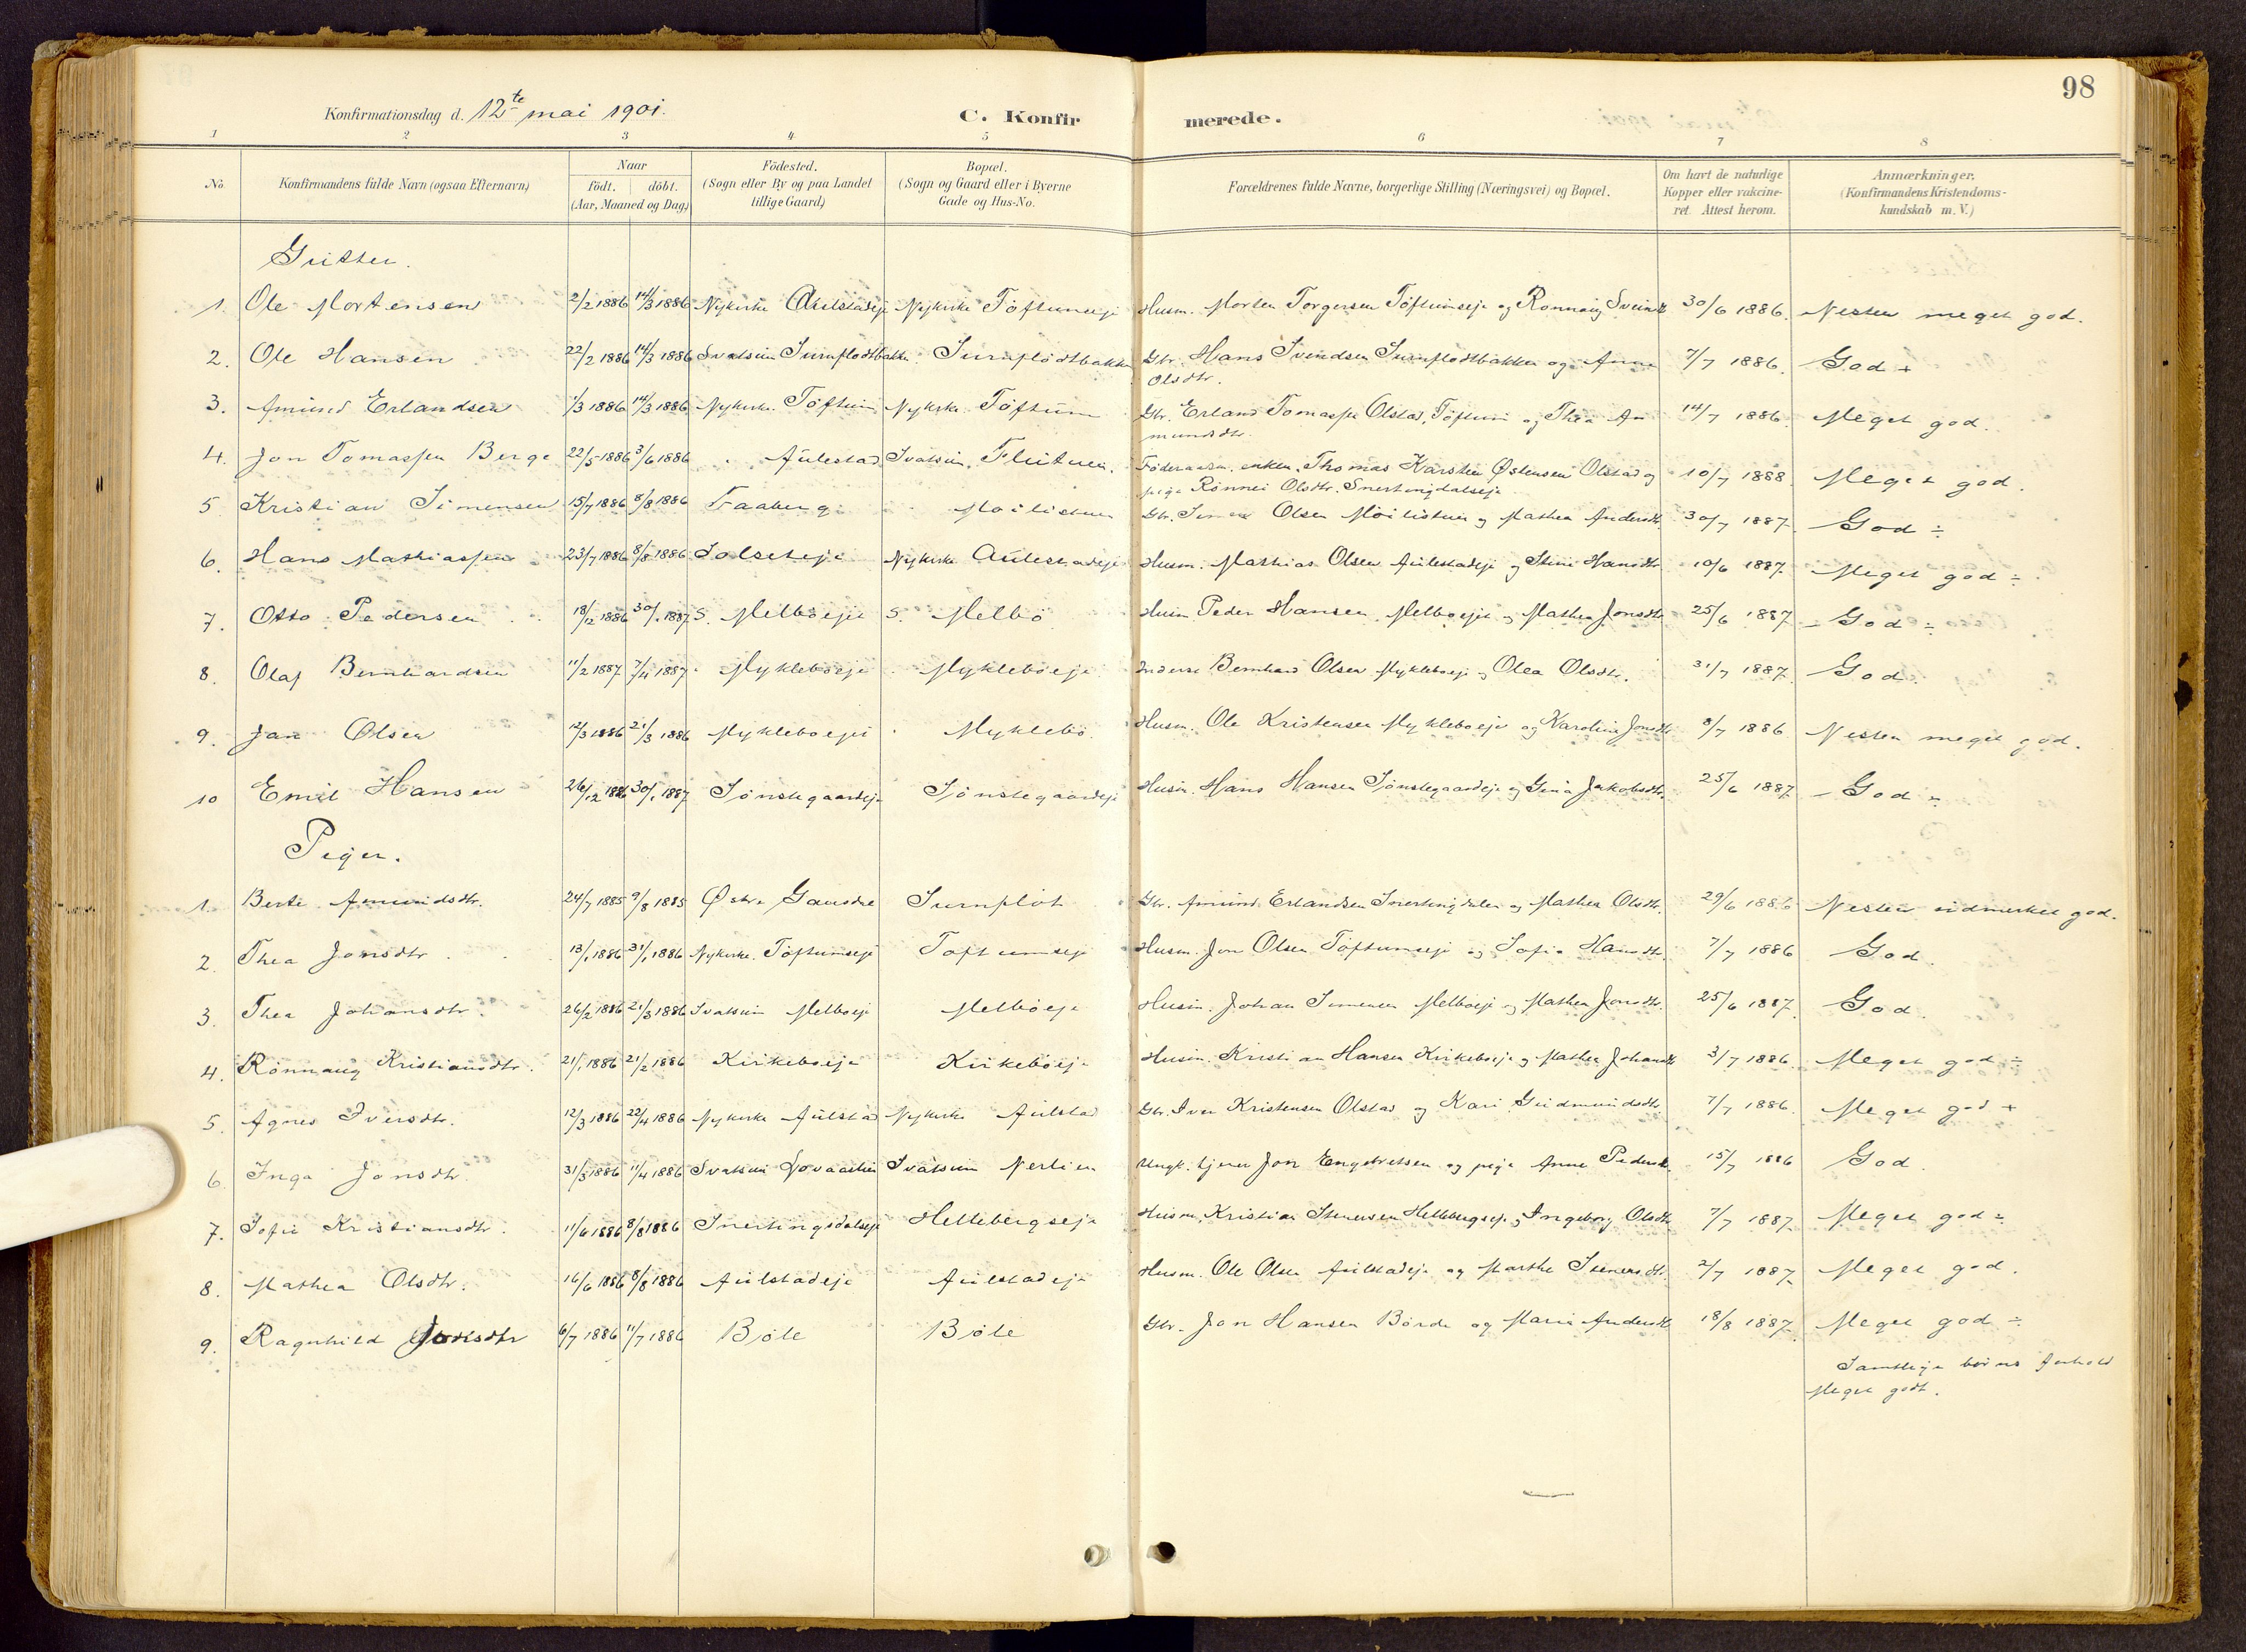 98
Konfirmationsdag d. 12te mai 1901.
C. Konfirmerede.
1 2 3 4 5 6 7 8
No. Konfirmandens fulde Navn (ogsaa Efternavn) Naar födt. döbt. (Aar, Maaned og Dag) Födested. (Sogn eller By og paa Landet tillige Gaard) Bopæl. (Sogn og Gaard eller i Byerne Gade og Hus-No. Forældrenes fulde Navne, borgerlige Stilling (Næringsvei) og Bopæl. Om havt de naturlige Kopper eller vakcineret. Attest herom. Anmærkninger. (Konfirmandens Kristendomskundskab m. V.)
Gutter.
1. Ole Mortensen 2/2 1886 14/3 1886 Nykirke Nykirke Töftumseje Husm. Morten Torgersen Töftumseje og Rønnaug 30/6 1886. Nesten meget god.
2. Ole Hansen 22/2 1886 14/3 1886 Svatsum Surnflodtbakken Surnflödtbakken Gbr. Hans Svendsen Surnflodtbakken og Anne 7/7 1886. God +
Olsdtr.
3. Amund Erlandsen 1/3 1886 14/3 1886 Nykirke. Töftum Nykirke Töftum Gbr. Erland Tomassen Olstad, Töftum og Thea A- 14/7 1886. Meget god.
mundsdtr.
4. Jon Tomassen Berge 22/5 1886 3/6 1886 Aulestad Svatsum, Thomas Karsten Østensen Olstad og 10/7 1888 Meget god.
pige Rönnei Olsdtr. Snertingdalseje
5 Kristian Simensen 15/7 1886 8/8 1886 Faaberg Moilistuen Gbr. Simen Olsen Möilistuen og Mathea Andersdtr. 30/7 1887. God ÷
6. Hans Mathiassen 23/7 1886 8/8 1886 Solseteje Nykirke Aulestadeje Husm. Mathias Olsen Aulestadeje og Stine Hansdtr 10/6 1887. Meget god ÷
7. Otto Pedersen 18/12 1886 30/1 1887 S. Melböeje S. Melbö Husm Peder Hansen Melböeje og Mathea Jonsdtr 25/6 1887 - God ÷
8. Olaf Bernhardsen 11/2 1887 7/4 1887 Mykleböeje Mykleböeje Inderst Bernhard Olsen Mykleböeje og Olea Olsdtr. 31/7 1887. God.
9. Jan Olsen 12/3 1886 21/3 1886 Mykleboeje Myklebö Husm. Ole Kristensen Mykleboeje og Karoline Jonsdtr 8/7 1886 Nesten meget god.
10 Emil Hansen 26/12 1886 30/1 1887 Sjönstegaardeje Sjönstegaardeje Husm. Hans Hansen Sjönstegaardeje og Gina Jakobsdtr. 25/6 1887 - God ÷
Piger.
1. Berte Amundsdtr. 24/7 1885 9/8 1885 Østre Gausdal Surnflöt Gbr. Amund Erlandsen Snertingdalen og Mathea Olsdtr. 29/6 1886 Nesten udmerket god.
2. Thea Jonsdtr 13/1 1886 31/1 1886 Nykirke. Töftumseje Toftumseje Husm. Jon Olsen Töftumseje og Sofie Hansdtr. 7/7 1886 God.
3. Thea Johansdtr. 26/2 1886 21/3 1886 Svatsum Melboeje Melböeje Husm. Johan Simensen Melboeje og Mathea Jonsdtr. 25/6 1887. God.
4. Rönnaug Kristiansdtr. 21/1 1886 21/2 1886 Kirkeboeje Kirkeböeje Husm. Kristian Hansen Kirkeboeje og Mathea Johansdtr 3/7 1886. Meget god ÷
5. Agnes Iversdtr. 12/3 1886 22/4 1886 Nykirke Aulstad Nykirke Aulstad Gbr. Iver Kristensen Olstad og Kari Gudmundsdtr. 7/7 1886. Meget god +
6 Inga Jonsdtr. 31/3 1886 11/4 1886 Svatsum Svatsum Nerlien Ungk. tjener Jon Engebretsen og pige Anne Pedersdtr. 15/7 1886 God.
7. Sofie Kristiansdtr. 11/6 1886 8/8 1886 Snertingsdalseje Hellebergseje Husm. Kristian Stenersen Hellebergseje og Ingeborg Olsdtr 7/7 1887. Meget god ÷
8. Mathea Olsdtr. 16/6 1886 8/8 1886 Aulstadeje Aulstadeje Husm. Ole Olsen Aulstadeje og Marthe Stenersdtr. 2/7 1887. Meget god.
9. Ragnhild Jonsdtr 6/7 1886 11/7 1886 Böle Böle Gbr. Jon Hansen Börde og Marie Andersdtr 18/8 1887. Meget god ÷
Samtlige börns forhold
Meget godt.